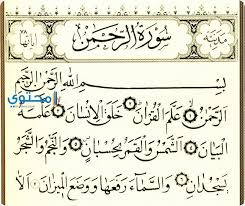 سُورَةُ الرَّحْمَٰن
بِسْمِ اللَّهِ الرَّحْمَٰنِ الرَّحِيمِ
الرَّحْمَٰنُ عَلَّمَ الْقُرْآنَ خَلَقَ الْإِنسَانَ عَلَّمَهُ
الْبَيَانَ الشَّمْسُ وَالْقَمَرُ بِحُسْبَانٍ وَالنَّجْمُ وَالشَّجَرُ
يَسْجُدَانِ وَالسَّمَاءَ رَفَعَهَا وَوَضَعَ الْمِيزَانَ أَلَّا
محتوى